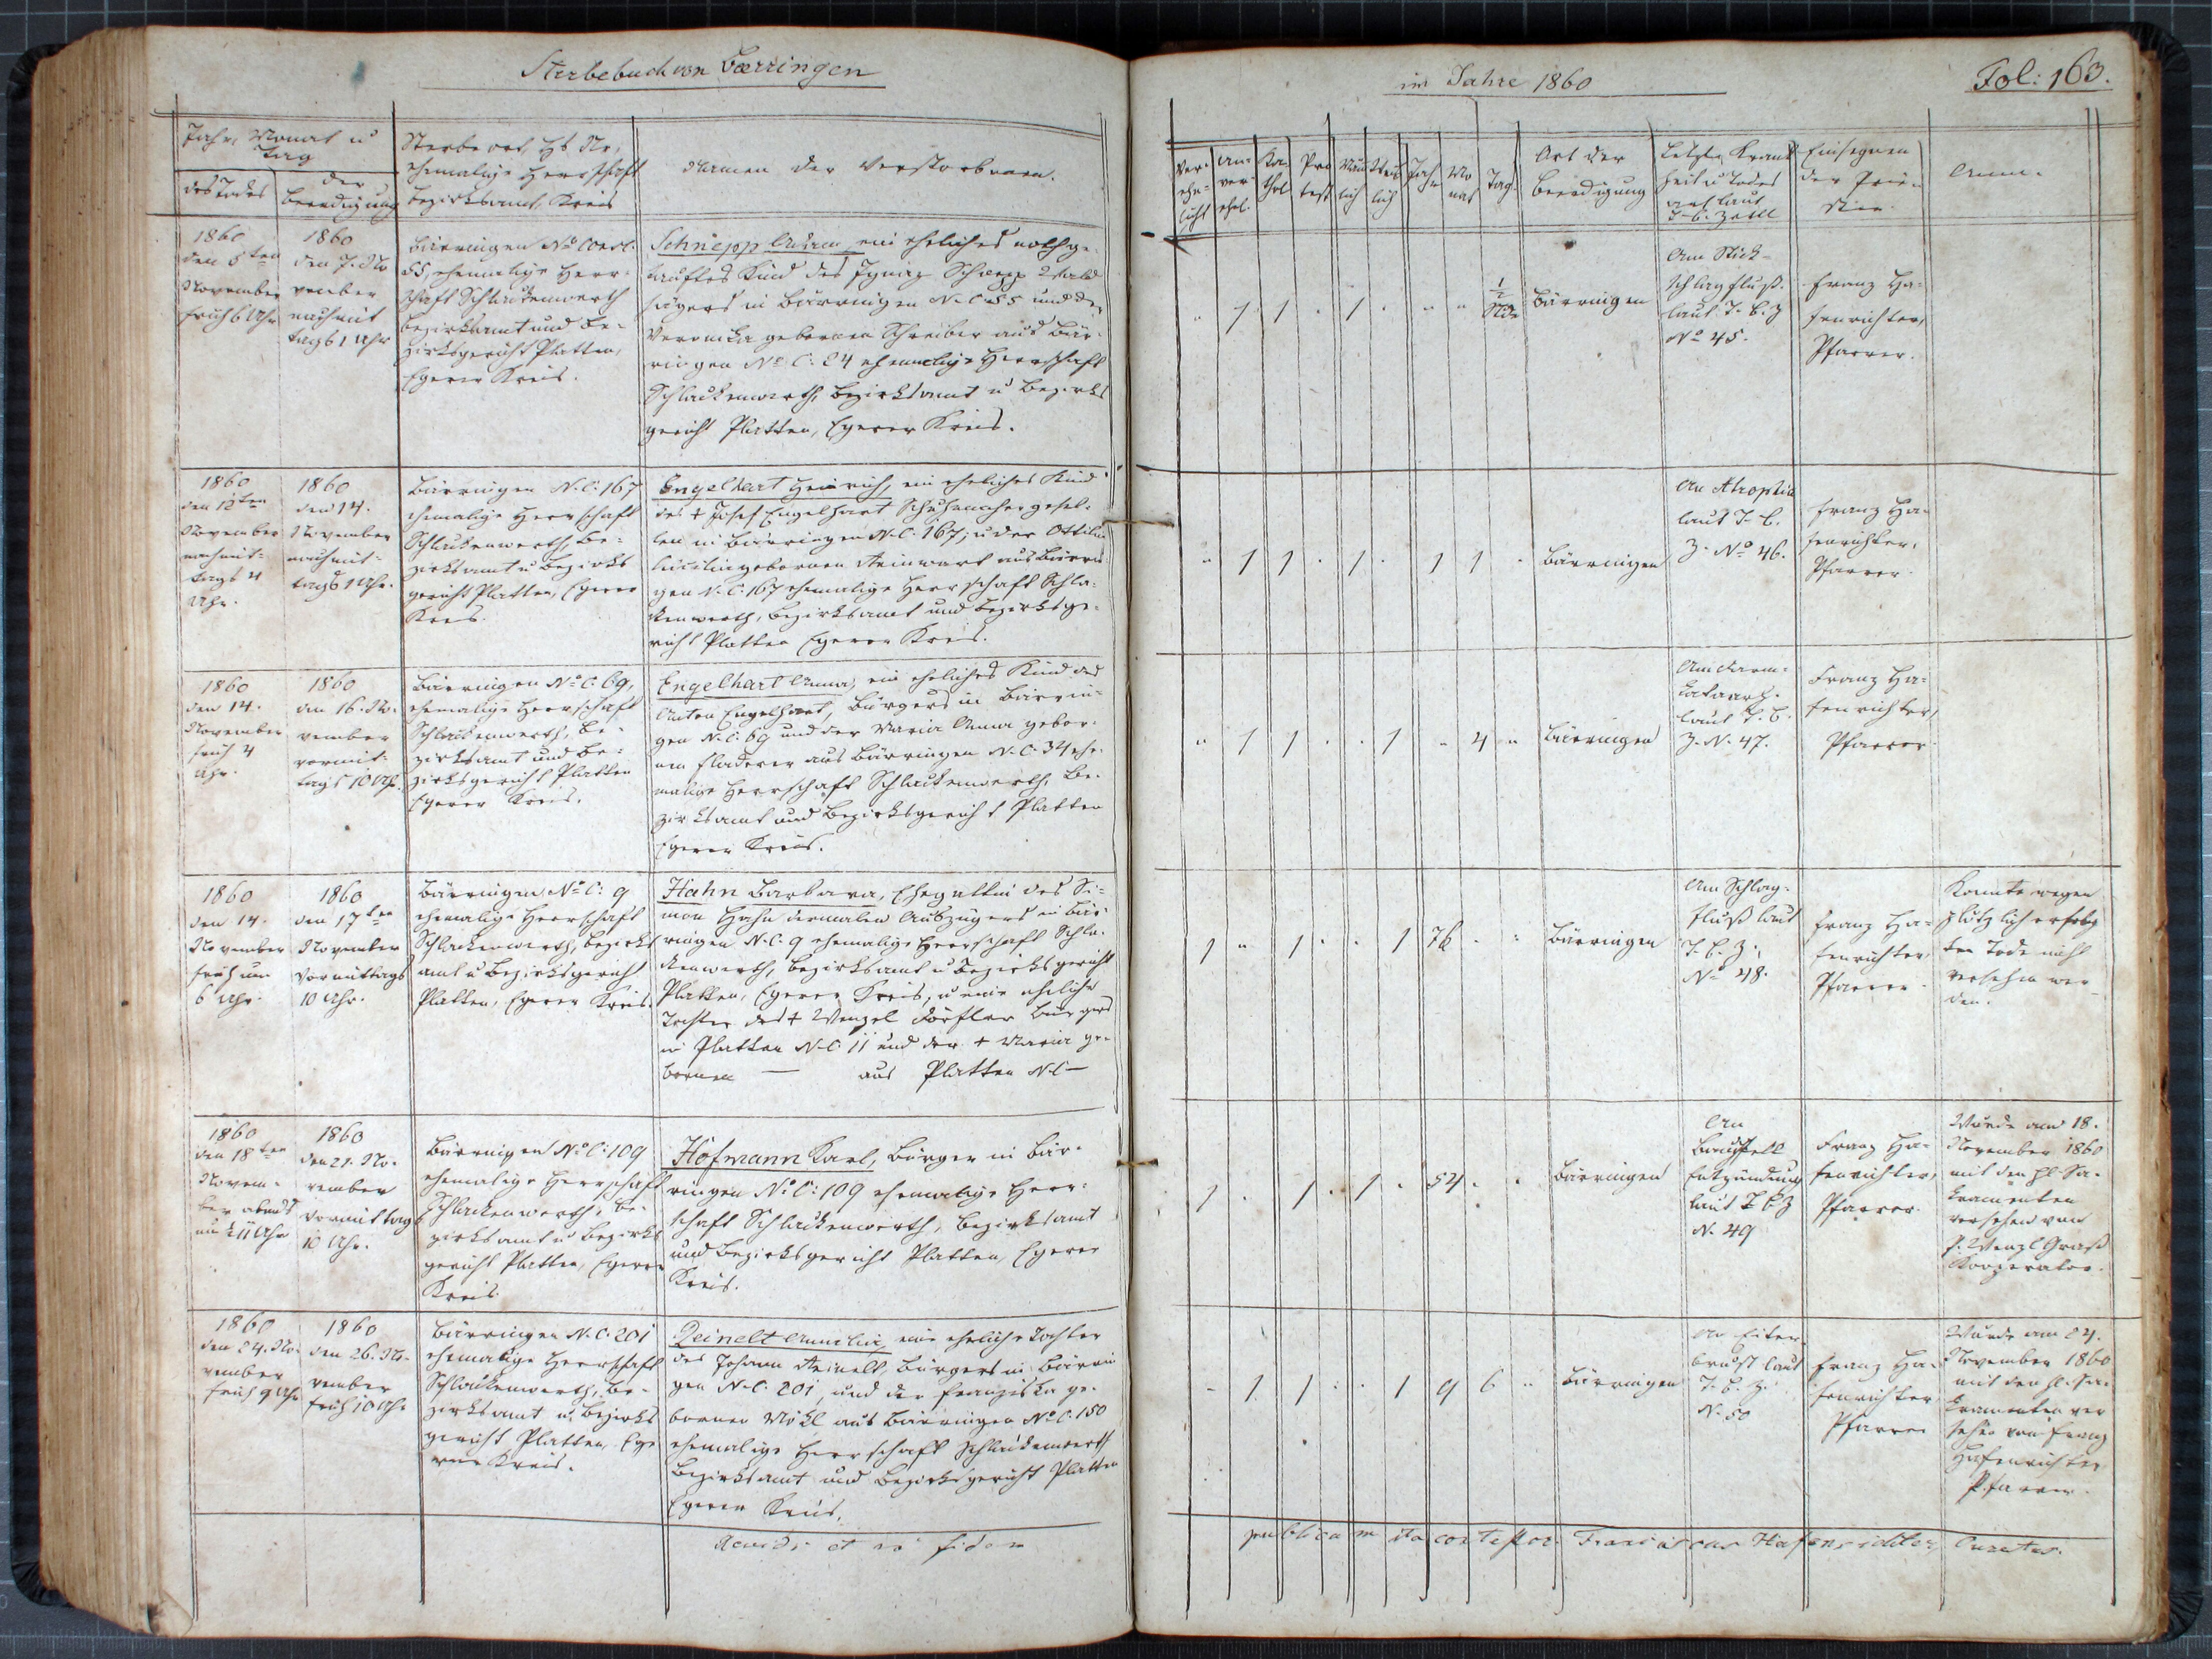 Sterbebuch von Bærringen
im Jahre 1860
Fol: 163.
Jahr, Monat u
Tag
des Todes
der
Beerdigung
Sterbeort, Hs No,
ehemalige Herrschaft
Bezirksamt, Kreis
Namen der Verstorbenen.
Ver-
ehe-
licht
un-
ver-
ehel.
Ka-
thol
Pro
test
Män
lich
Weib
lich
Jahr
Mo
nat
Tag
Ort der
Beerdigung
Letzte Krank
heit u Todes
art laut
T. B. Zettl
Einsegnen
der Prie-
ster
Anm.
1860
den 5ten
November
früh 6 Uhr
1860
den 7. No
vember
nachmit
tags 1 Uhr
Bärringen No Cons.
55, ehemalige Herr-
schaft Schlackenwerth
Bezirksamt und Be-
zirksgericht Platten,
Egerer Kreis.
Schnepp Anton, ein eheliches nothge-
tauftes Kind des Ignaz Schnepp Wald
hegers in Bärringen N. C. 55 und der
Veronika gebornen Schreiber aus Bär-
ringen No C: 84 ehemalige Herrschaft
Schlackenwerth, Bezirksamt u Bezirks
gericht Platten, Egerer Kreis.
" 1 1 . 1 . " " ½ Std. Bärringen
Am Stick-
schlagfluß.
laut T. B. Z
No 45.
Franz Ha-
fenrichter,
Pfarrer.
1860
den 12ten
November
nachmit-
tags 4
Uhr.
1860
den 14.
November
nachmit-
tags 1 Uhr.
Bärringen N. C: 167
ehemalige Herrschaft
Schlackenwerth, Be-
zirksamt u Bezirks
gericht Platten, Egerer
Kreis.
Engelhart Heinrich, ein eheliches Kind
des + Josef Engelhart Schuhmachergesel-
len in Bärringen N. C. 167, u der Ottilia
gebornen aus Bärrin
gen N. C. 167 ehemalige Herrschaft Schla-
kenwerth, Bezirksamt und Bezirksge-
richt Platten Egerer Kreis.
" 1 1 . 1 . 1 1 . Bärringen
An Atrophia
laut T. B.
Z. No 46.
Franz Ha-
fenrichter,
Pfarrer.
1860
den 14.
November
früh 4
Uhr.
1860
den 16. No-
vember
vormit-
tags 10 Uhr.
Bärringen No C. 69,
ehemalige Herrschaft
Schlackenwerth, Be-
zirksamt und Be-
zirksgericht Platten
Egerer Kreis.
Engelhart Anna, ein eheliches Kind des
Anton Engelhart, Bürgers in Bärrin-
gen N. C. 69 und der Maria Anna gebor-
nen Fladerer aus Bärringen N. C. 34 ehe-
malige Herrschaft Schlackenwerth, Be-
zirksamt und Bezirksgericht Platten
Egerer Kreis.
" 1 1 . . 1 " 4 " Bärringen
Am Darm-
katarrh.
laut T. B.
Z. N. 47.
Franz Ha-
fenrichter,
Pfarrer.
1860
den 14.
November
früh um
6 Uhr.
1860
den 17ten
November
Vormittags
10 Uhr.
Bärringen No C: 9
ehemalige Herrschaft
Schlackenwerth, Bezirks
amt u Bezirksgericht
Platten, Egerer Kreis.
Hahn Barbara, Ehegattin des Si-
mon Hahn dermalen Auszügers in Bär-
ringen N. C. 9 ehemalige Herrschaft Schla-
kenwerth, Bezirksamt u Bezirksgericht
Platten, Egerer Kreis, u eine eheliche
Tochter des + Wenzel Dörfler Bürgers
in Platten N. C 11 und der + Maria ge-
bornen — aus Platten N. C —
1 " 1 . . 1 76 . . Bärringen
Am Schlag-
fluß laut
T. B. Z.
No 48.
Franz Ha-
fenrichter,
Pfarrer.
Konnte wegen
plötzlich erfolg
ten Tode nicht
versehen wer-
den.
1860
den 18ten
Novem-
ber abends
um ½ 11 Uhr
1860
den 21. No-
vember
Vormittags
10 Uhr.
Bärringen No C: 109
ehemalige Herrschaft
Schlackenwerth, Be-
zirksamt u Bezirks
gericht Platten, Egerer
Kreis.
Hofmann Karl, Bürger in Bär-
ringen No C: 109 ehemalige Herr-
schaft Schlackenwerth, Bezirksamt
und Bezirksgericht Platten, Egerer
Kreis.
1 . 1 . 1 . 54 . . Bärringen
An
Bauchfell
Entzündung
laut T B Z
N. 49
Franz Ha-
fenrichter,
Pfarrer.
Wurde am 18.
November 1860
mit den hl. Sa-
kramenten
versehen von
P. Wenzl Graß
Kooperator.
1860
den 24. No-
vember
früh 9 Uhr
1860
den 26. No-
vember
früh 10 Uhr
Bärringen N. C. 201
ehemalige Herrschaft
Schlackenwerth, Be-
zirksamt u. Bezirks
gericht Platten, Ege
rer Kreis.
Reinelt eine eheliche Tochter
des Johann Reinelt, Bürgers in Bärrin
gen N. C. 201, und der Franziska ge-
bornen Möckl aus Bärringen No C. 150
ehemalige Herrschaft Schlackenwerth
Bezirksamt und Bezirksgericht Platten
Egerer Kreis.
" 1 1 . . 1 9 6 " Bärringen
An Eiter
brust laut
T. B. Z.
N. 50
Franz Ha-
fenrichter
Pfarrer
Wurde am 24.
November 1860
mit den hl. Sa-
kramenten ver
sehen von Franz
Hafenrichter
Pfarrer.
Revidi et in fidem
publicam ita contestor. Franciscus Hafenrichter, Curatus.